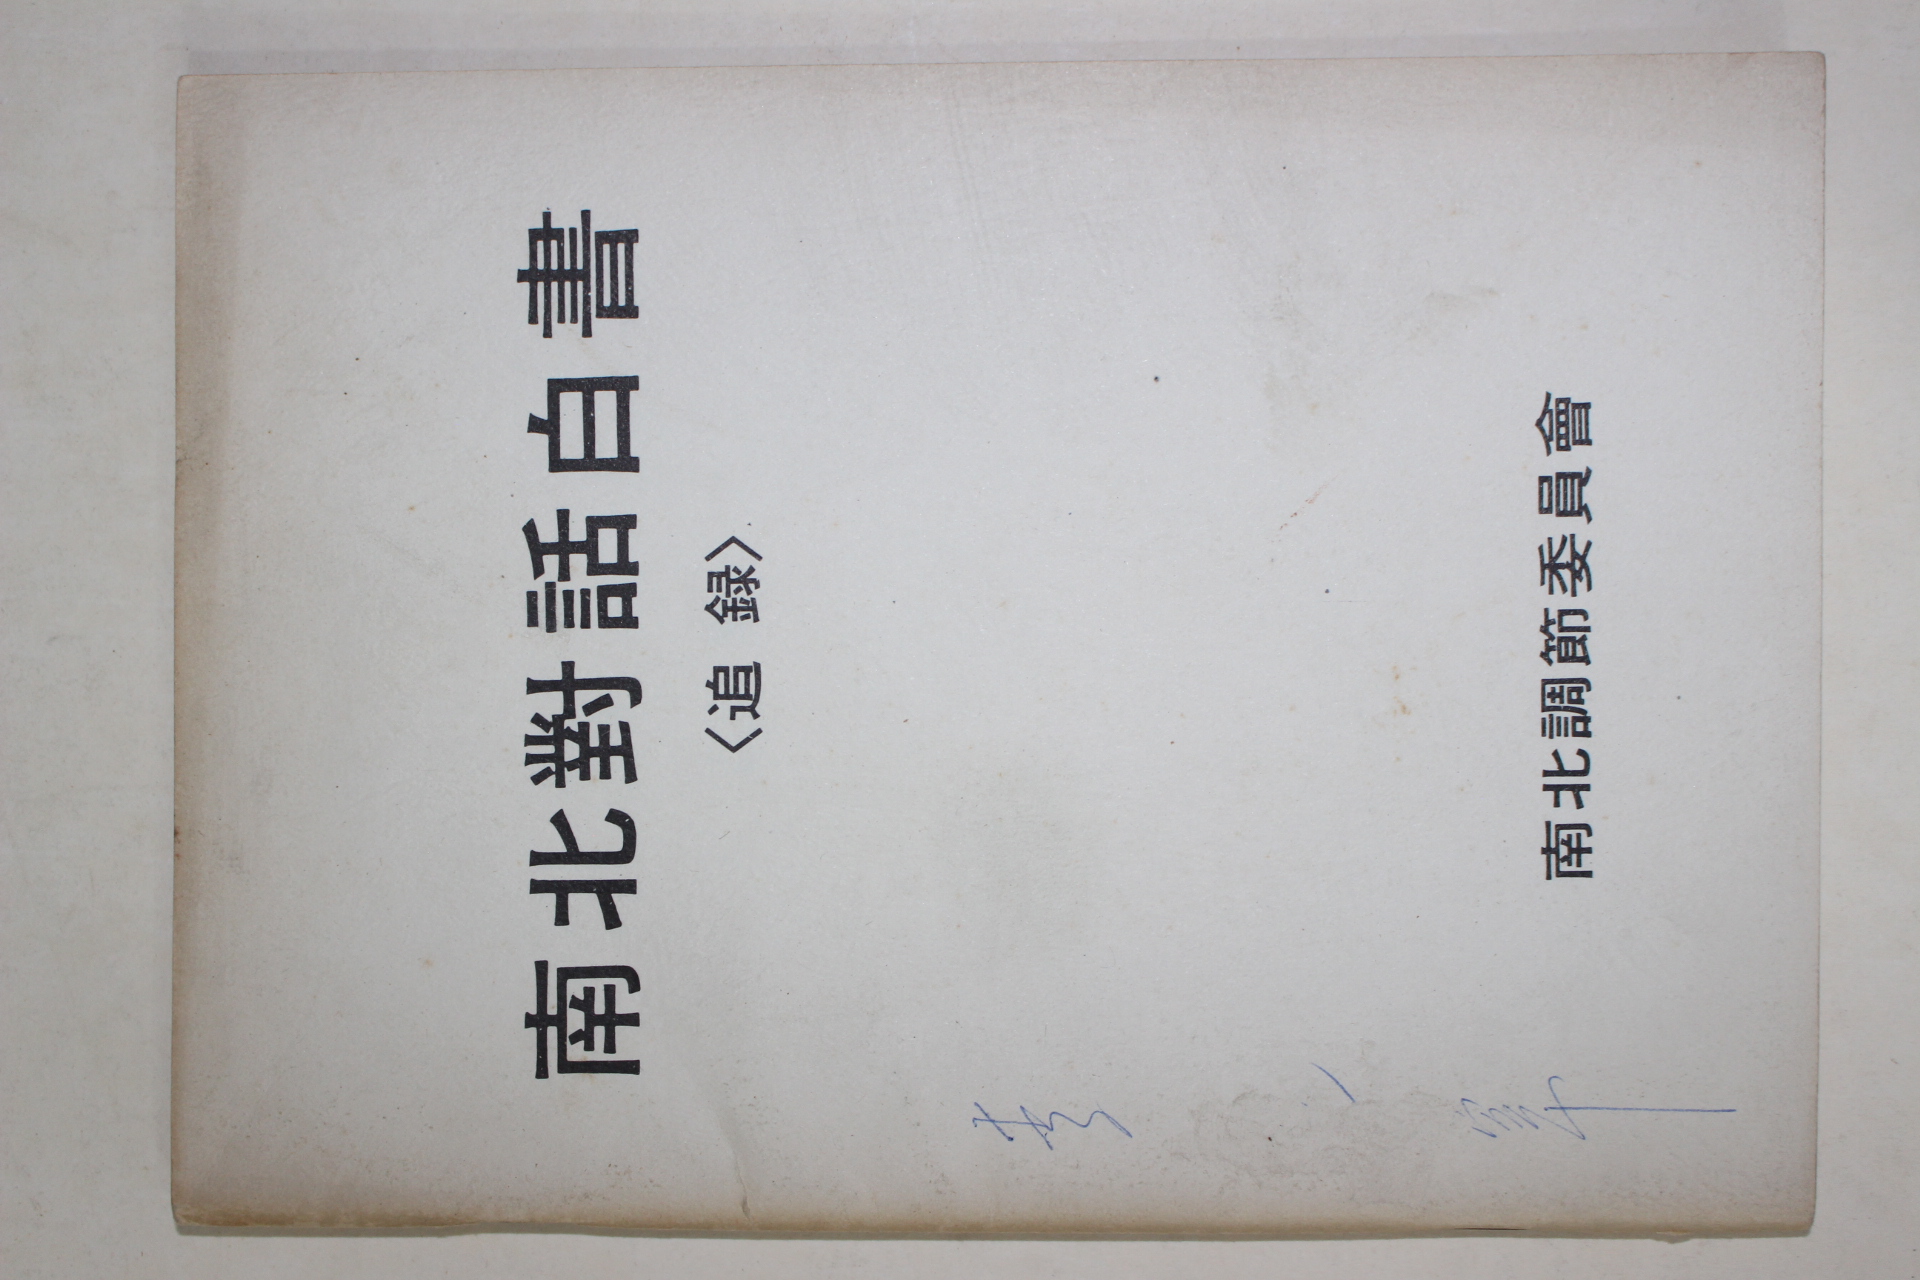 南北對話白書
〈追 録〉
南北調節委員會